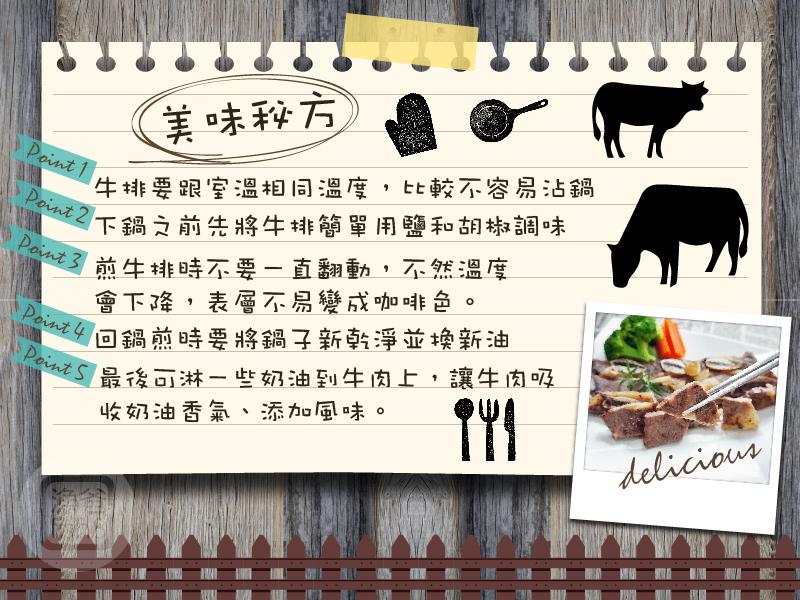 美味秘方
Point 1
牛排要跟室溫相同溫度，比較不容易沾鍋
Point 2
下鍋之前先將牛排簡單用鹽和胡椒調味
Point 3
煎牛排時不要一直翻動，不然溫度
會下降，表層不易變成咖啡色。
Point 4
回鍋煎時要將鍋子新乾淨並換新油
Point 5
最後可淋一些奶油到牛肉上，讓牛肉吸
收奶油香氣、添加風味。
delicious